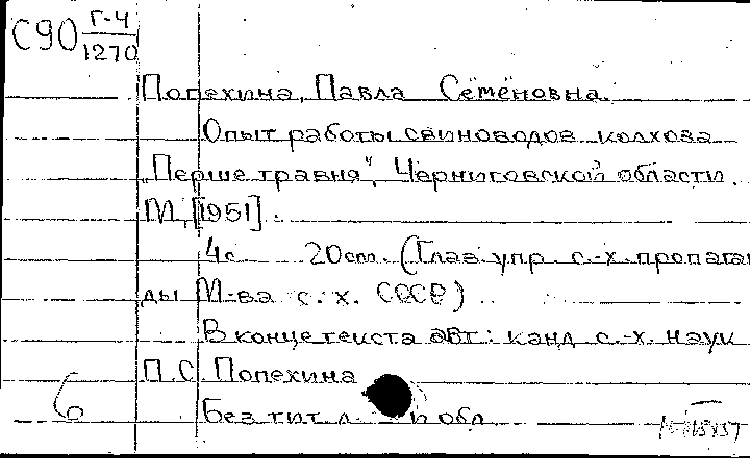 С90 Г-4/1270
Попехина, Павла Семёновна.
Опыт работы свиноводов колхоза
„Перше травня", Черниговской области.
М., [1951].
4с. 20см. (Глав. упр. с.-х. пропаган
ды М-ва с.-х. СССР)
В конце текста авт.: канд. с.-х. наук
П.С. Попехина
6 Без тит. л. и обл.